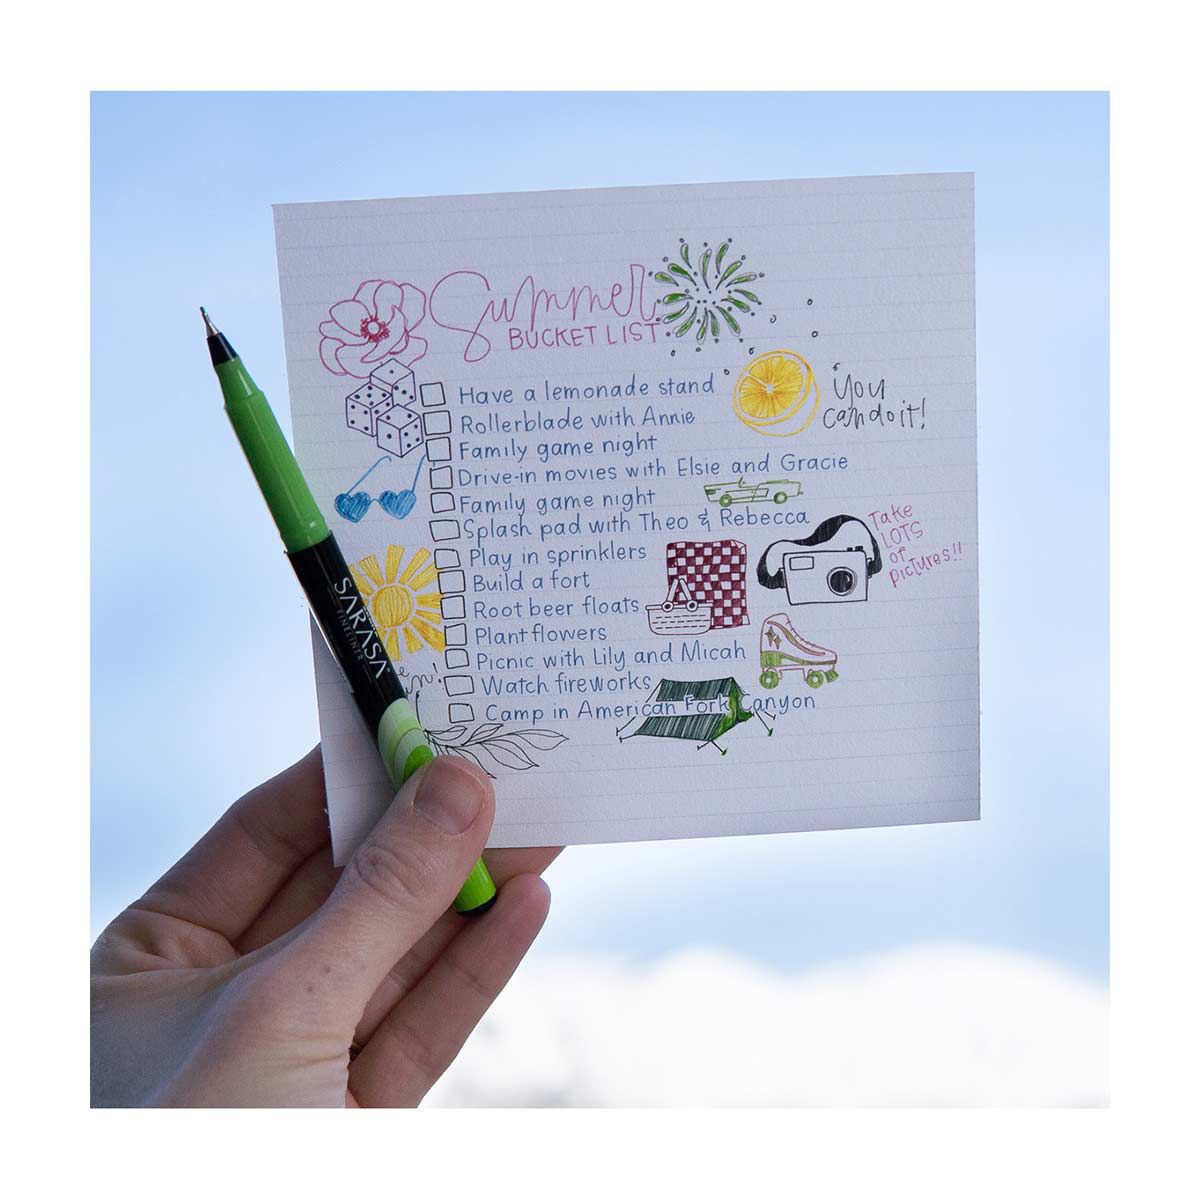 Summer
BUCKET LIST
Have a lemonade stand
Rollerblade with Annie
Family game night
Drive-in movies with Elsie and Gracie
Family game night
Splash pad with Theo & Rebecca
Play in sprinklers
Build a fort
Root beer floats
Plant flowers
Picnic with Lily and Micah
Watch fireworks
Camp in American Fork Canyon
You
can do it!
Take
LOTS
of
pictures!!
SARASA
FINELINER